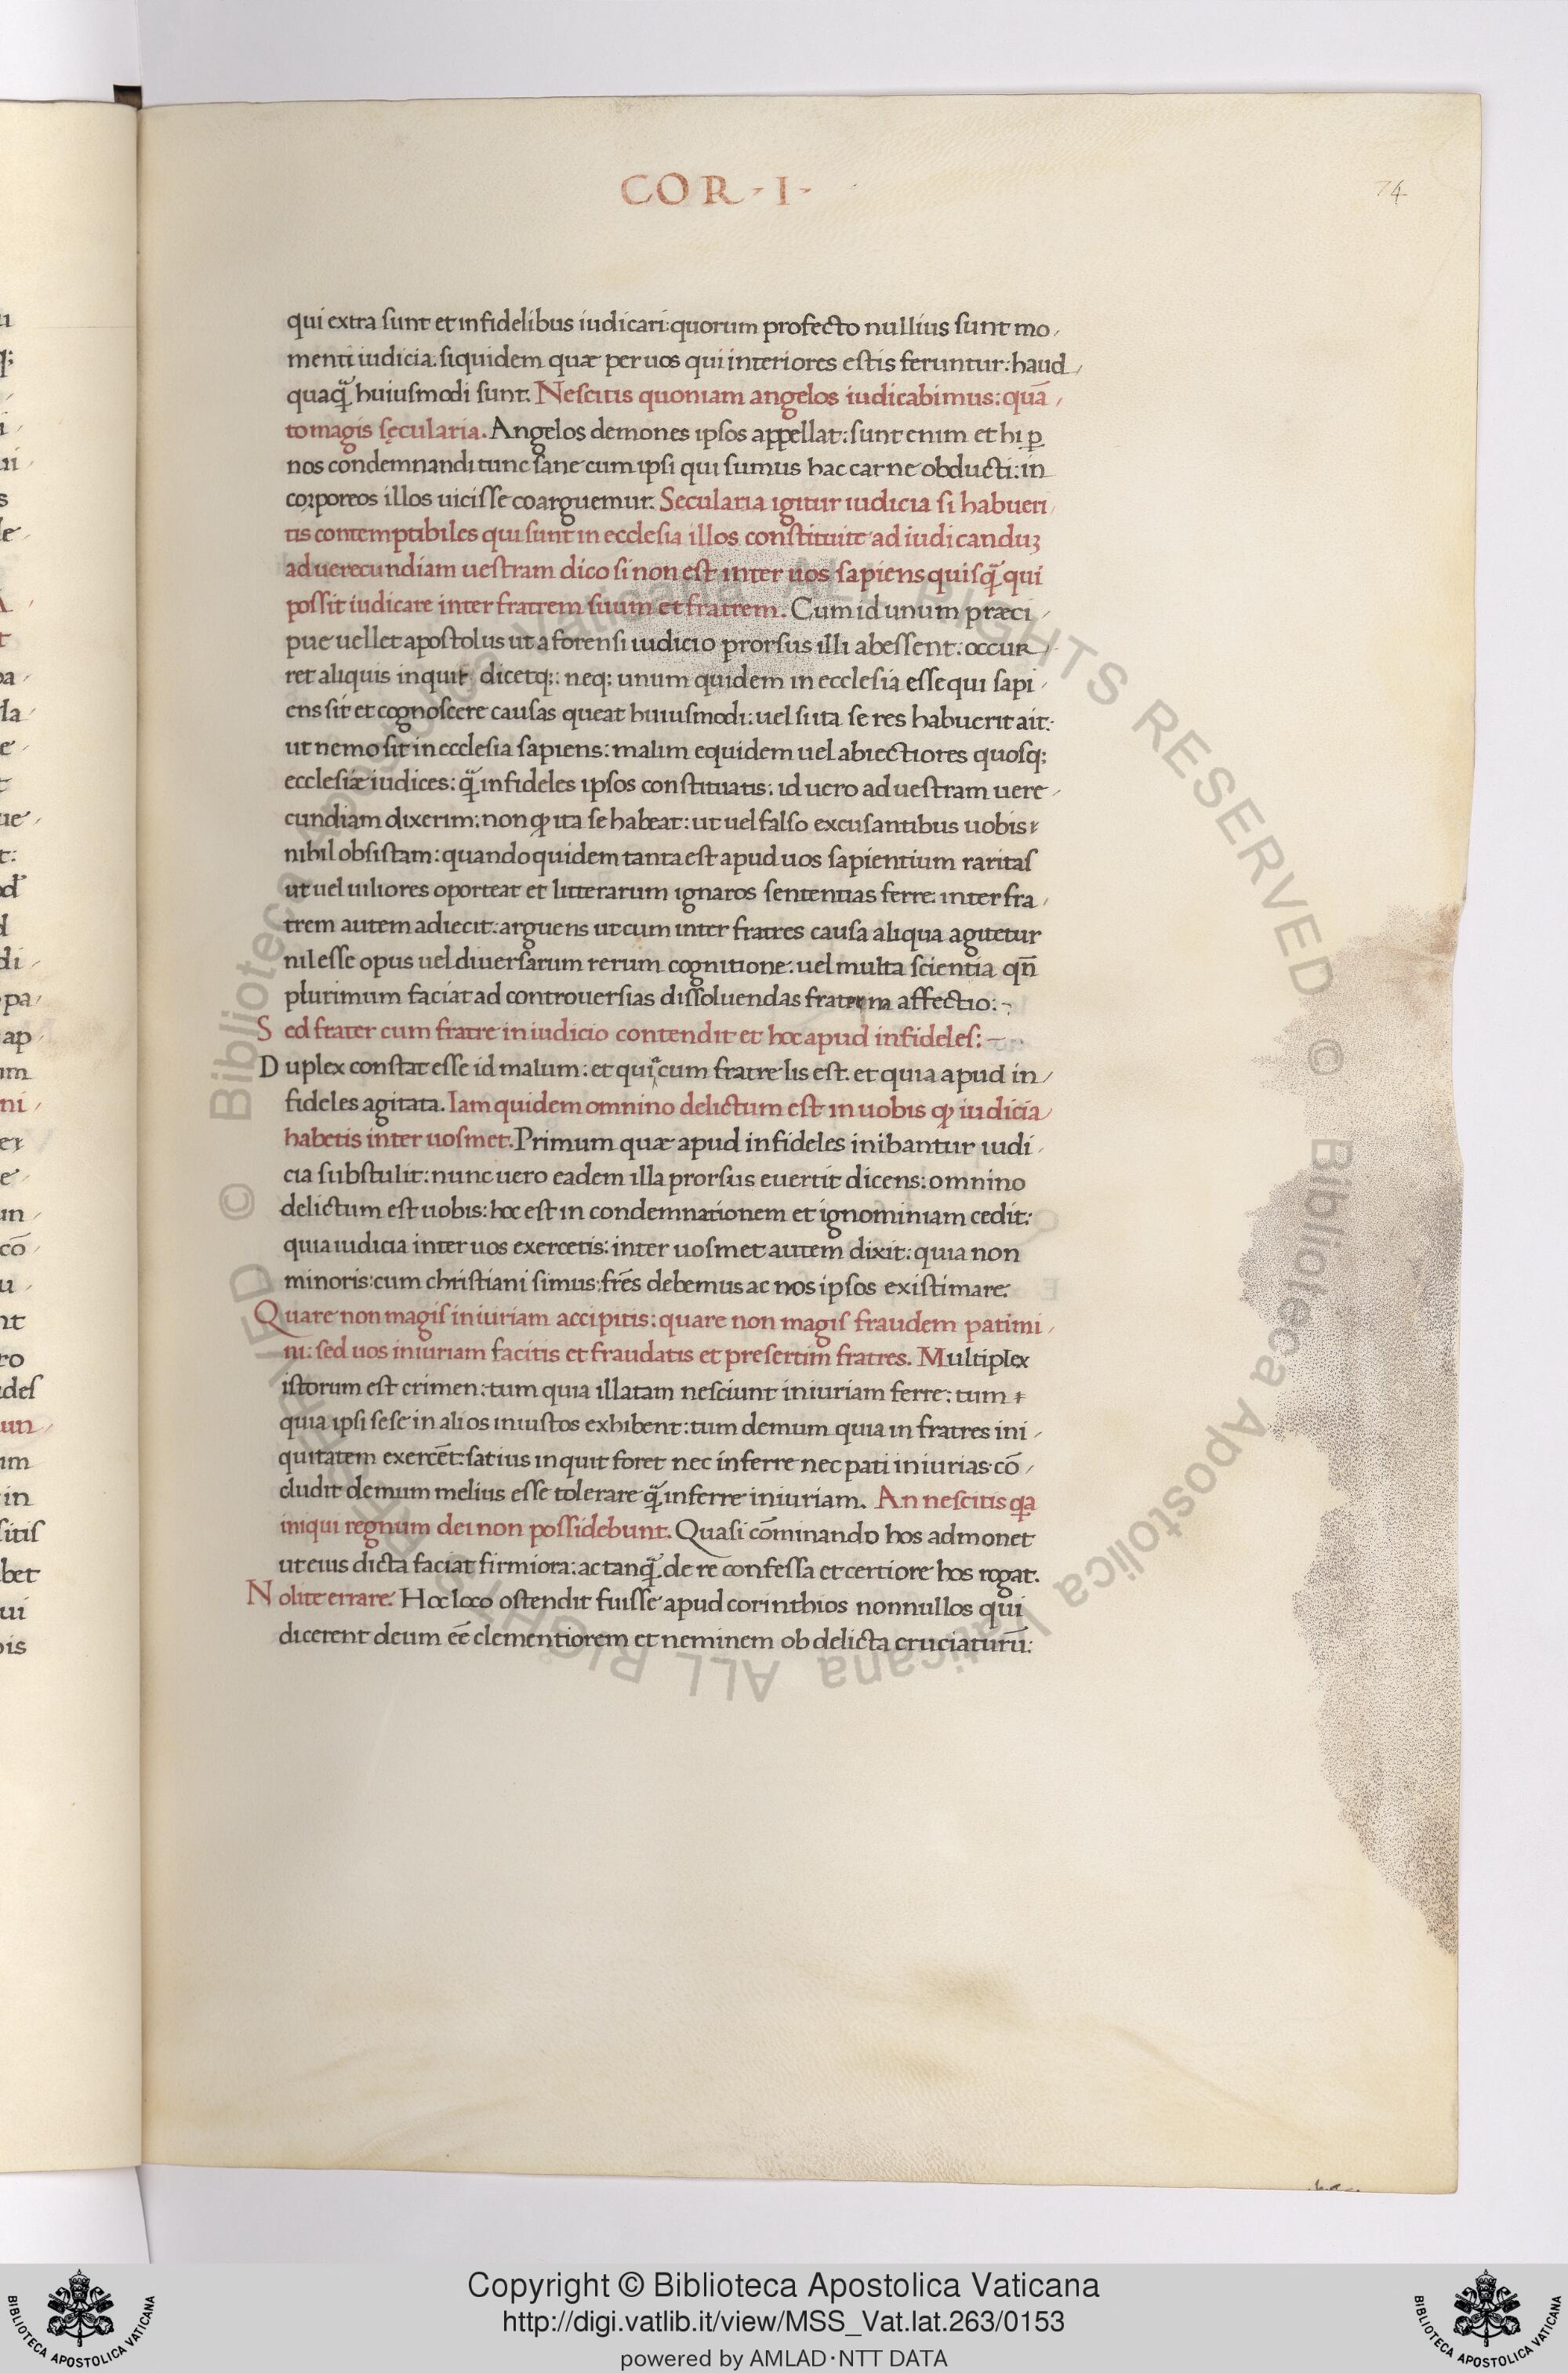 COR · I ·
74
qui extra sunt et infidelibus iudicari: quorum profecto nullius sunt mo/
menti iudicia. siquidem quæ per uos qui interiores estis feruntur: haud/
quaq̃ huiusmodi sunt. Nescitis quoniam angelos iudicabimus: quã/
to magis sęcularia. Angelos demones ipsos appellat: sunt enim et hi ꝑ
nos condemnandi tunc sane cum ipsi qui sumus hac carne obducti: in
corporeos illos uicisse coarguemur. Secularia igitur iudicia si habueri/
tis contemptibiles qui sunt in ecclesia illos constituite ad iudicanduꝫ
ad uerecundiam uestram dico si non est inter uos sapiens quisq̃ qui
possit iudicare inter fratrem suum et fratrem. Cum id unum præci/
pue uellet apostolus ut a forensi iudicio prorsus illi abessent. occur/
ret aliquis inquit dicetq;: neq; unum quidem in ecclesia esse qui sapi/
ens sit et cognoscere causas queat huiusmodi: uel si ita se res habuerit ait:
ut nemo sit in ecclesia sapiens: malim equidem uel abiectiores quosq;
ecclesiæ iudices: q̃ infideles ipsos constituatis: id uero ad uestram uere/
cundiam dixerim: non ꝙ ita se habeat: ut uel falso excusantibus uobis
nihil obsistam: quando quidem tanta est apud uos sapientium raritas
ut uel uiliores oporteat et litterarum ignaros sententias ferre: inter fra/
trem autem adiecit: arguens ut cum inter fratres causa aliqua agitetur
nil esse opus uel diuersarum rerum cognitione: uel multa scientia qñ
plurimum faciat ad controuersias dissoluendas fraterna affectio:
Sed frater cum fratre in iudicio contendit et hoc apud infideles:
Duplex constat esse id malum: et quia cum fratre lis est. et quia apud in/
fideles agitata. Iam quidem omnino delictum est in uobis ꝙ iudicia/
habetis inter uosmet. Primum quæ apud infideles inibantur iudi/
cia substulit: nunc uero eadem illa prorsus euertit dicens: omnino
delictum est uobis: hoc est in condemnationem et ignominiam cedit:
quia iudicia inter uos exercetis: inter uosmet autem dixit: quia non
minoris: cum christiani simus: fr̃es debemus ac nos ipsos existimare:
Quare non magis iniuriam accipitis: quare non magis fraudem patimi/
ni: sed uos iniuriam facitis et fraudatis et presertim fratres. Multiplex
istorum est crimen: tum quia illatam nesciunt iniuriam ferre: tum
quia ipsi sese in alios iniustos exhibent: tum demum quia in fratres ini/
quitatem exercẽt: satius inquit foret nec inferre nec pati iniurias: cõ/
cludit demum melius esse tolerare q̃ inferre iniuriam. An nescitis qa
iniqui regnum dei non possidebunt. Quasi cõminando hos admonet
ut eius dicta faciat firmiora: ac tanq̃ de re confessa et certiore hos rogat.
Nolite errare: Hoc loco ostendit fuisse apud corinthios nonnullos qui
dicerent deum eẽ clementiorem et neminem ob delicta cruciaturũ:
Copyright © Biblioteca Apostolica Vaticana
http://digi.vatlib.it/view/MSS_Vat.lat.263/0153
powered by AMLAD·NTT DATA
BIBLIOTECA APOSTOLICA VATICANA
BIBLIOTECA APOSTOLICA VATICANA
© Biblioteca Apostolica Vaticana ALL RIGHTS RESERVED © Biblioteca Apostolica Vaticana ALL RIGHTS RESERVED